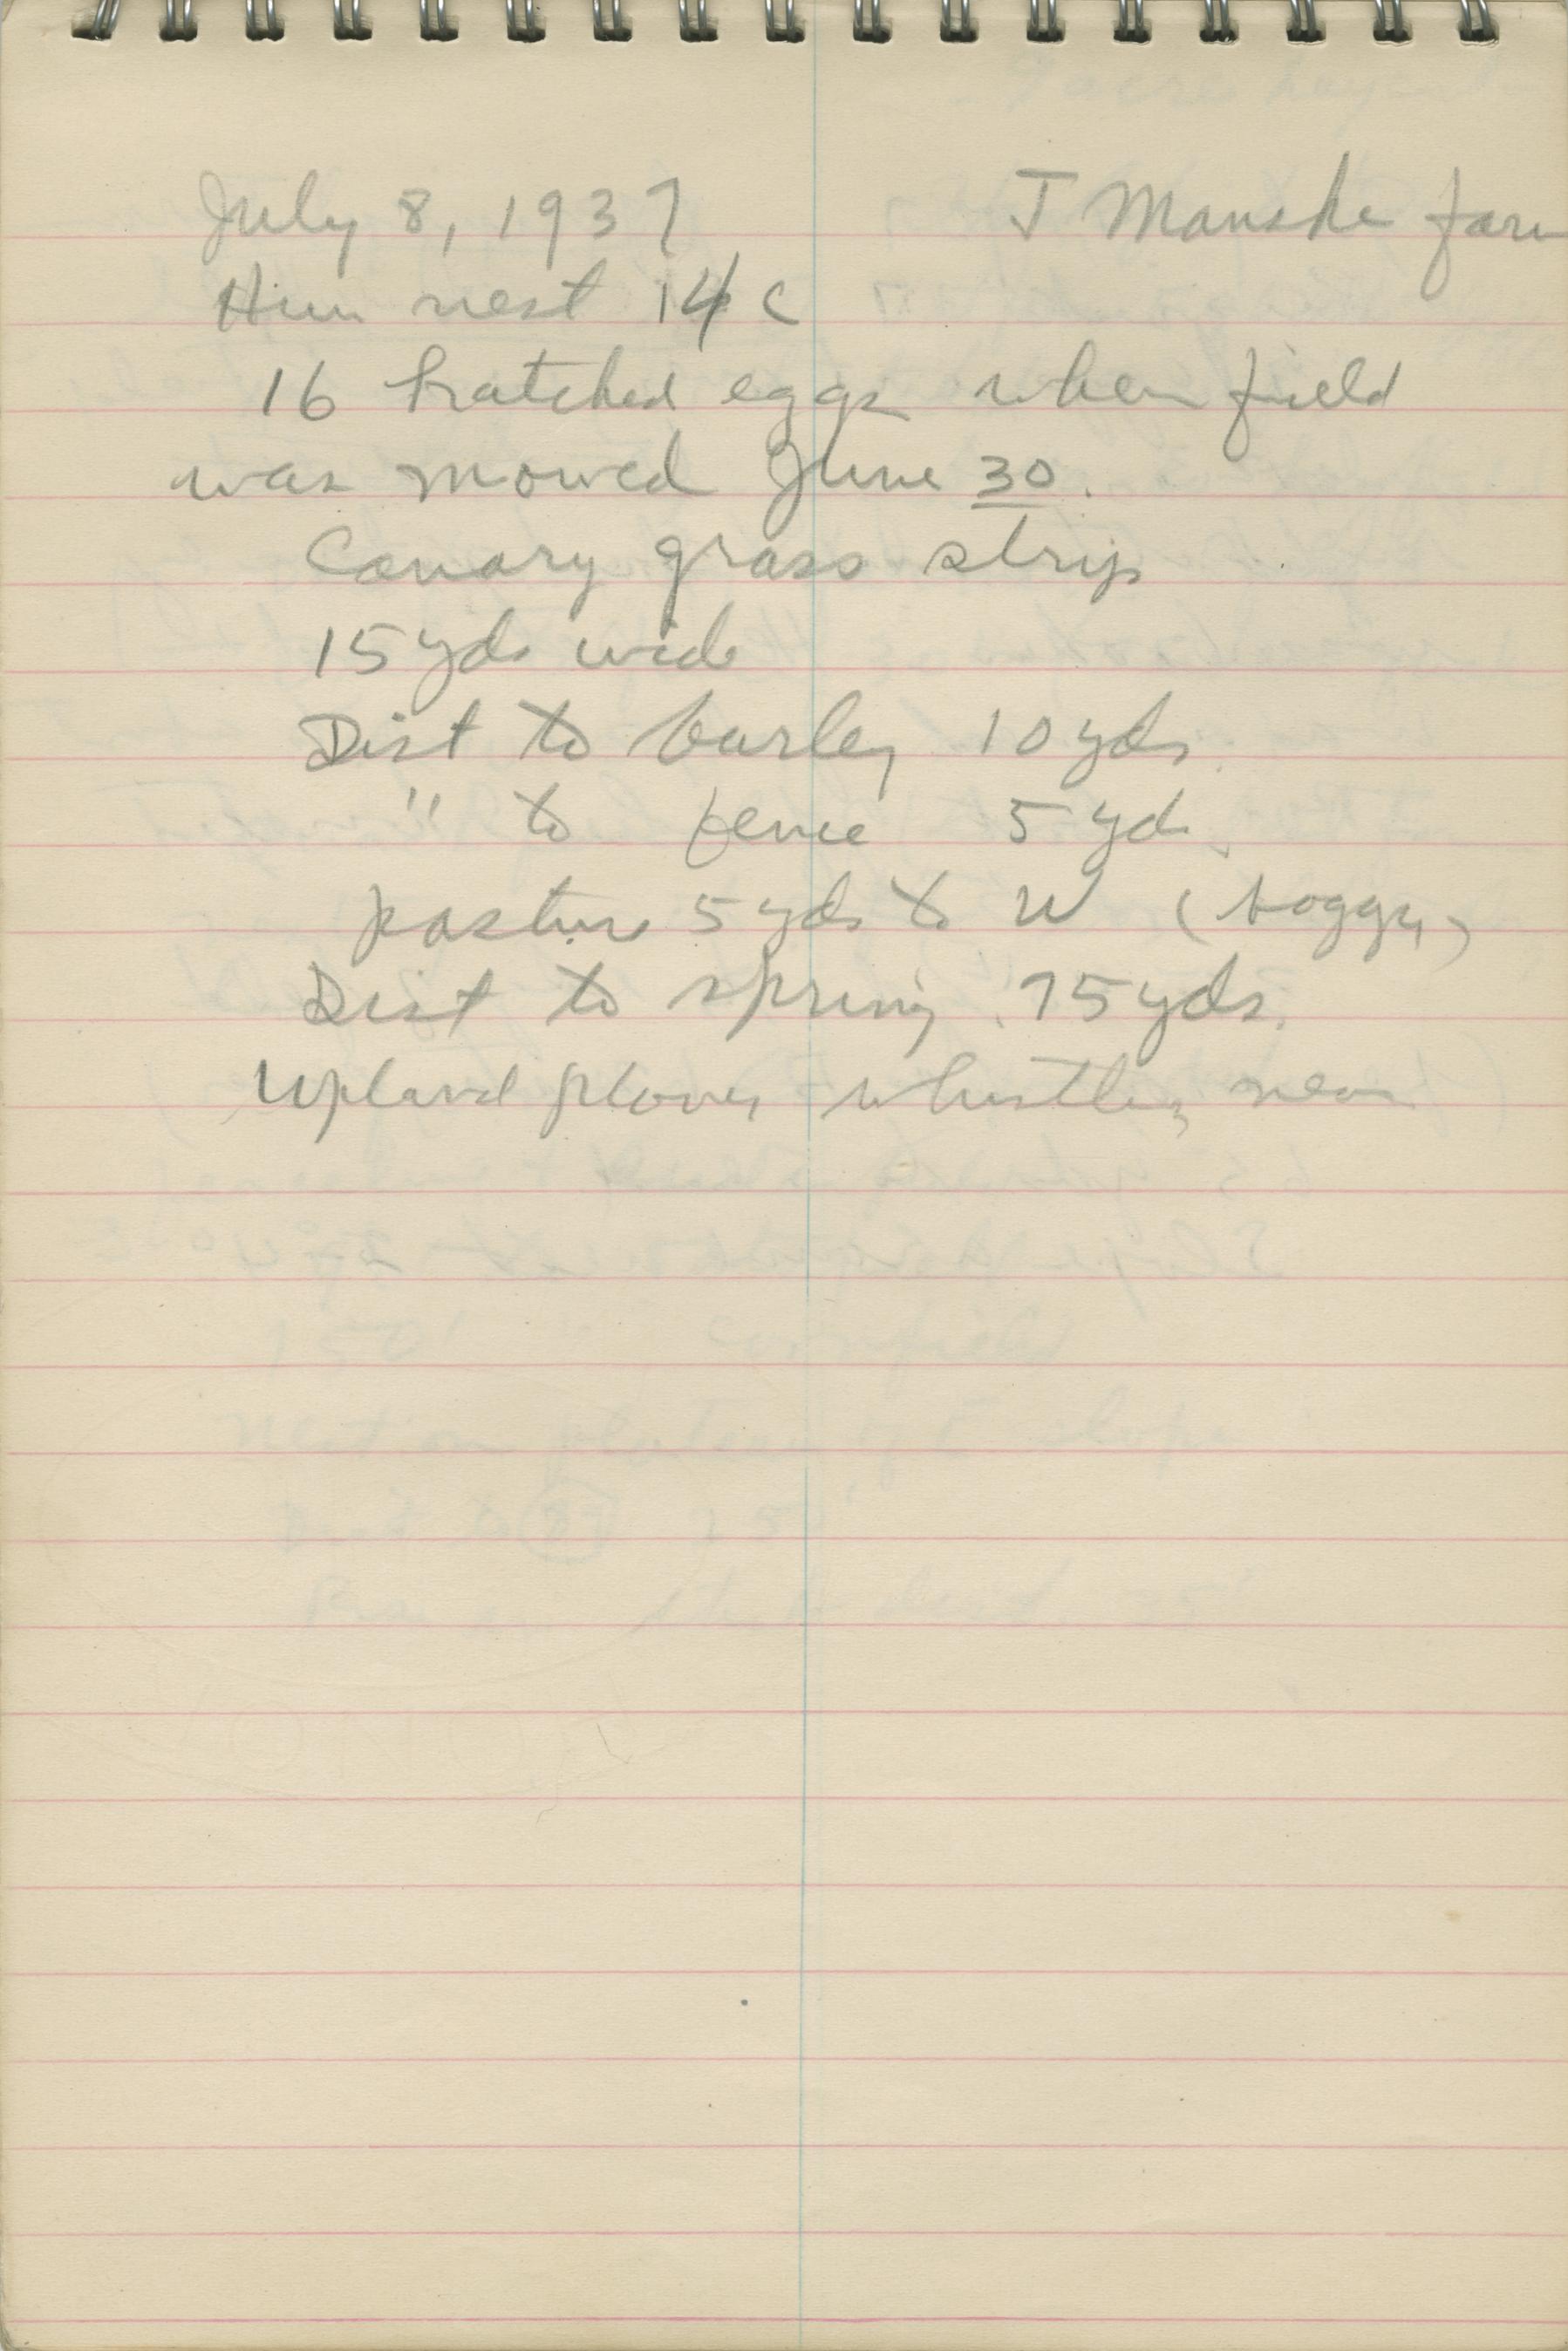 July 8, 1937 J Manske farm
Hun nest 14 C
16 hatched eggs when field
was mowed June 30.
Canary grass strip
15 yds wide
Dist to barley 10 yds.
" to fence 5 yds.
pasture 5 yds to W (boggy)
Dist to spring 75 yds.
Upland plover whistling near